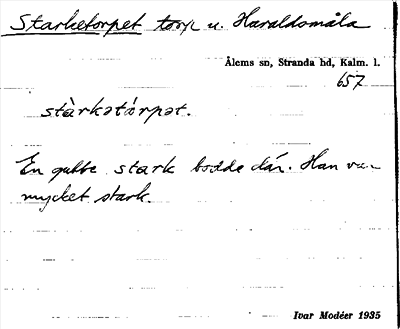 Starketorpet torp u. Haraldsmåla
Ålems sn, Stranda hd, Kalm. l.
657
stàrkətárpət.
En gubbe stark bodde där. Han var
mycket stark.
Ivar Modéer 1935